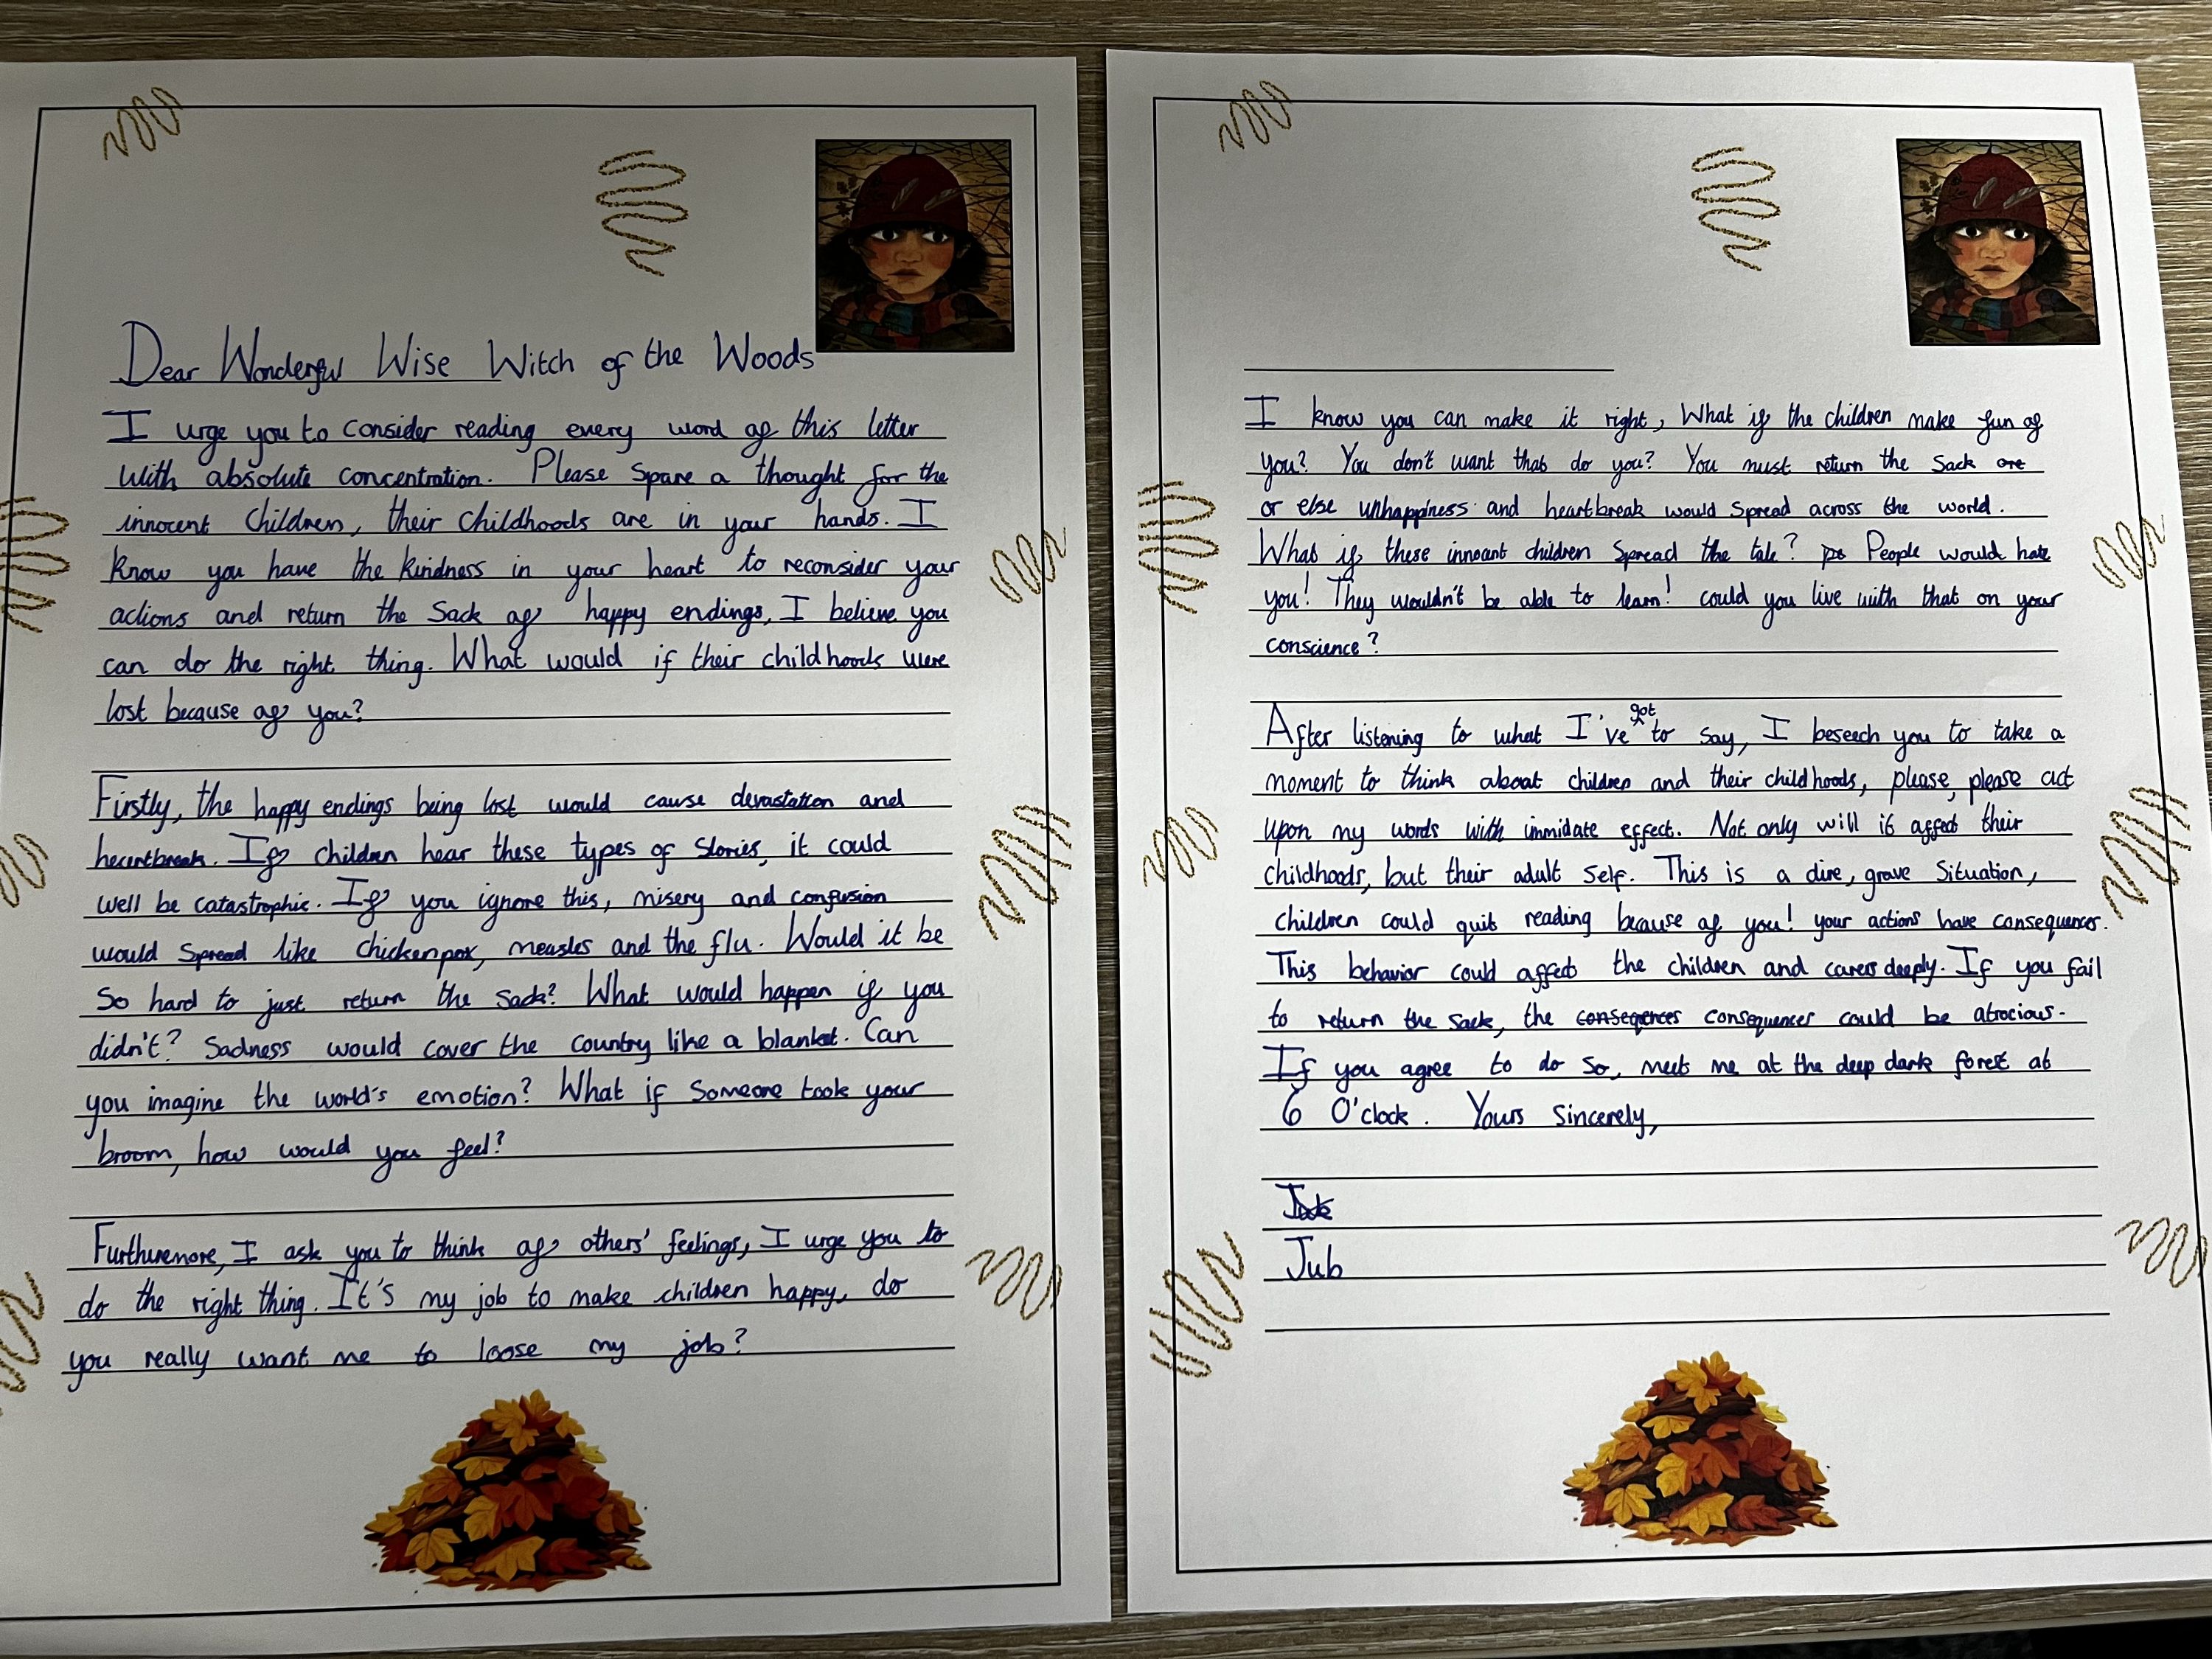 Dear Wonderful Wise Witch of the Woods
I urge you to consider reading every word of this letter
with absolute concentration. Please spare a thought for the
innocent children, their childhoods are in your hands. I
know you have the kindness in your heart to reconsider your
actions and return the sack of happy endings, I believe you
can do the right thing. What would if their childhoods were
lost because of you?
Firstly, the happy endings being lost would cause devastation and
heartbreak. If children hear these types of stories, it could
well be catastrophic. If you ignore this, misery and confusion
would spread like chickenpox, measles and the flu. Would it be
so hard to just return the sack? What would happen if you
didn't? Sadness would cover the country like a blanket. Can
you imagine the world's emotion? What if someone took your
broom, how would you feel?
Furthermore, I ask you to think of others' feelings, I urge you to
do the right thing. It's my job to make children happy, do
you really want me to loose my job?
I know you can make it right, What if the children make fun of
you? You don't want that do you? You must return the sack are
or else unhappiness and heartbreak would spread across the world.
What if these innocent children spread the tale? People would hate
you! They wouldn't be able to learn! could you live with that on your
conscience?
After listening to what I've got to say, I beseech you to take a
moment to think about children and their childhoods, please, please act
upon my words with immidate effect. Not only will it affect their
childhoods, but their adult self. This is a dire, grave situation,
children could quit reading because of you! your actions have consequences.
This behavior could affect the children and carers deeply. If you fail
to return the sack, the conseqences consequences could be atrocious.
If you agree to do so, meet me at the deep dark forest at
6 O'clock. Yours Sincerely,
Jub